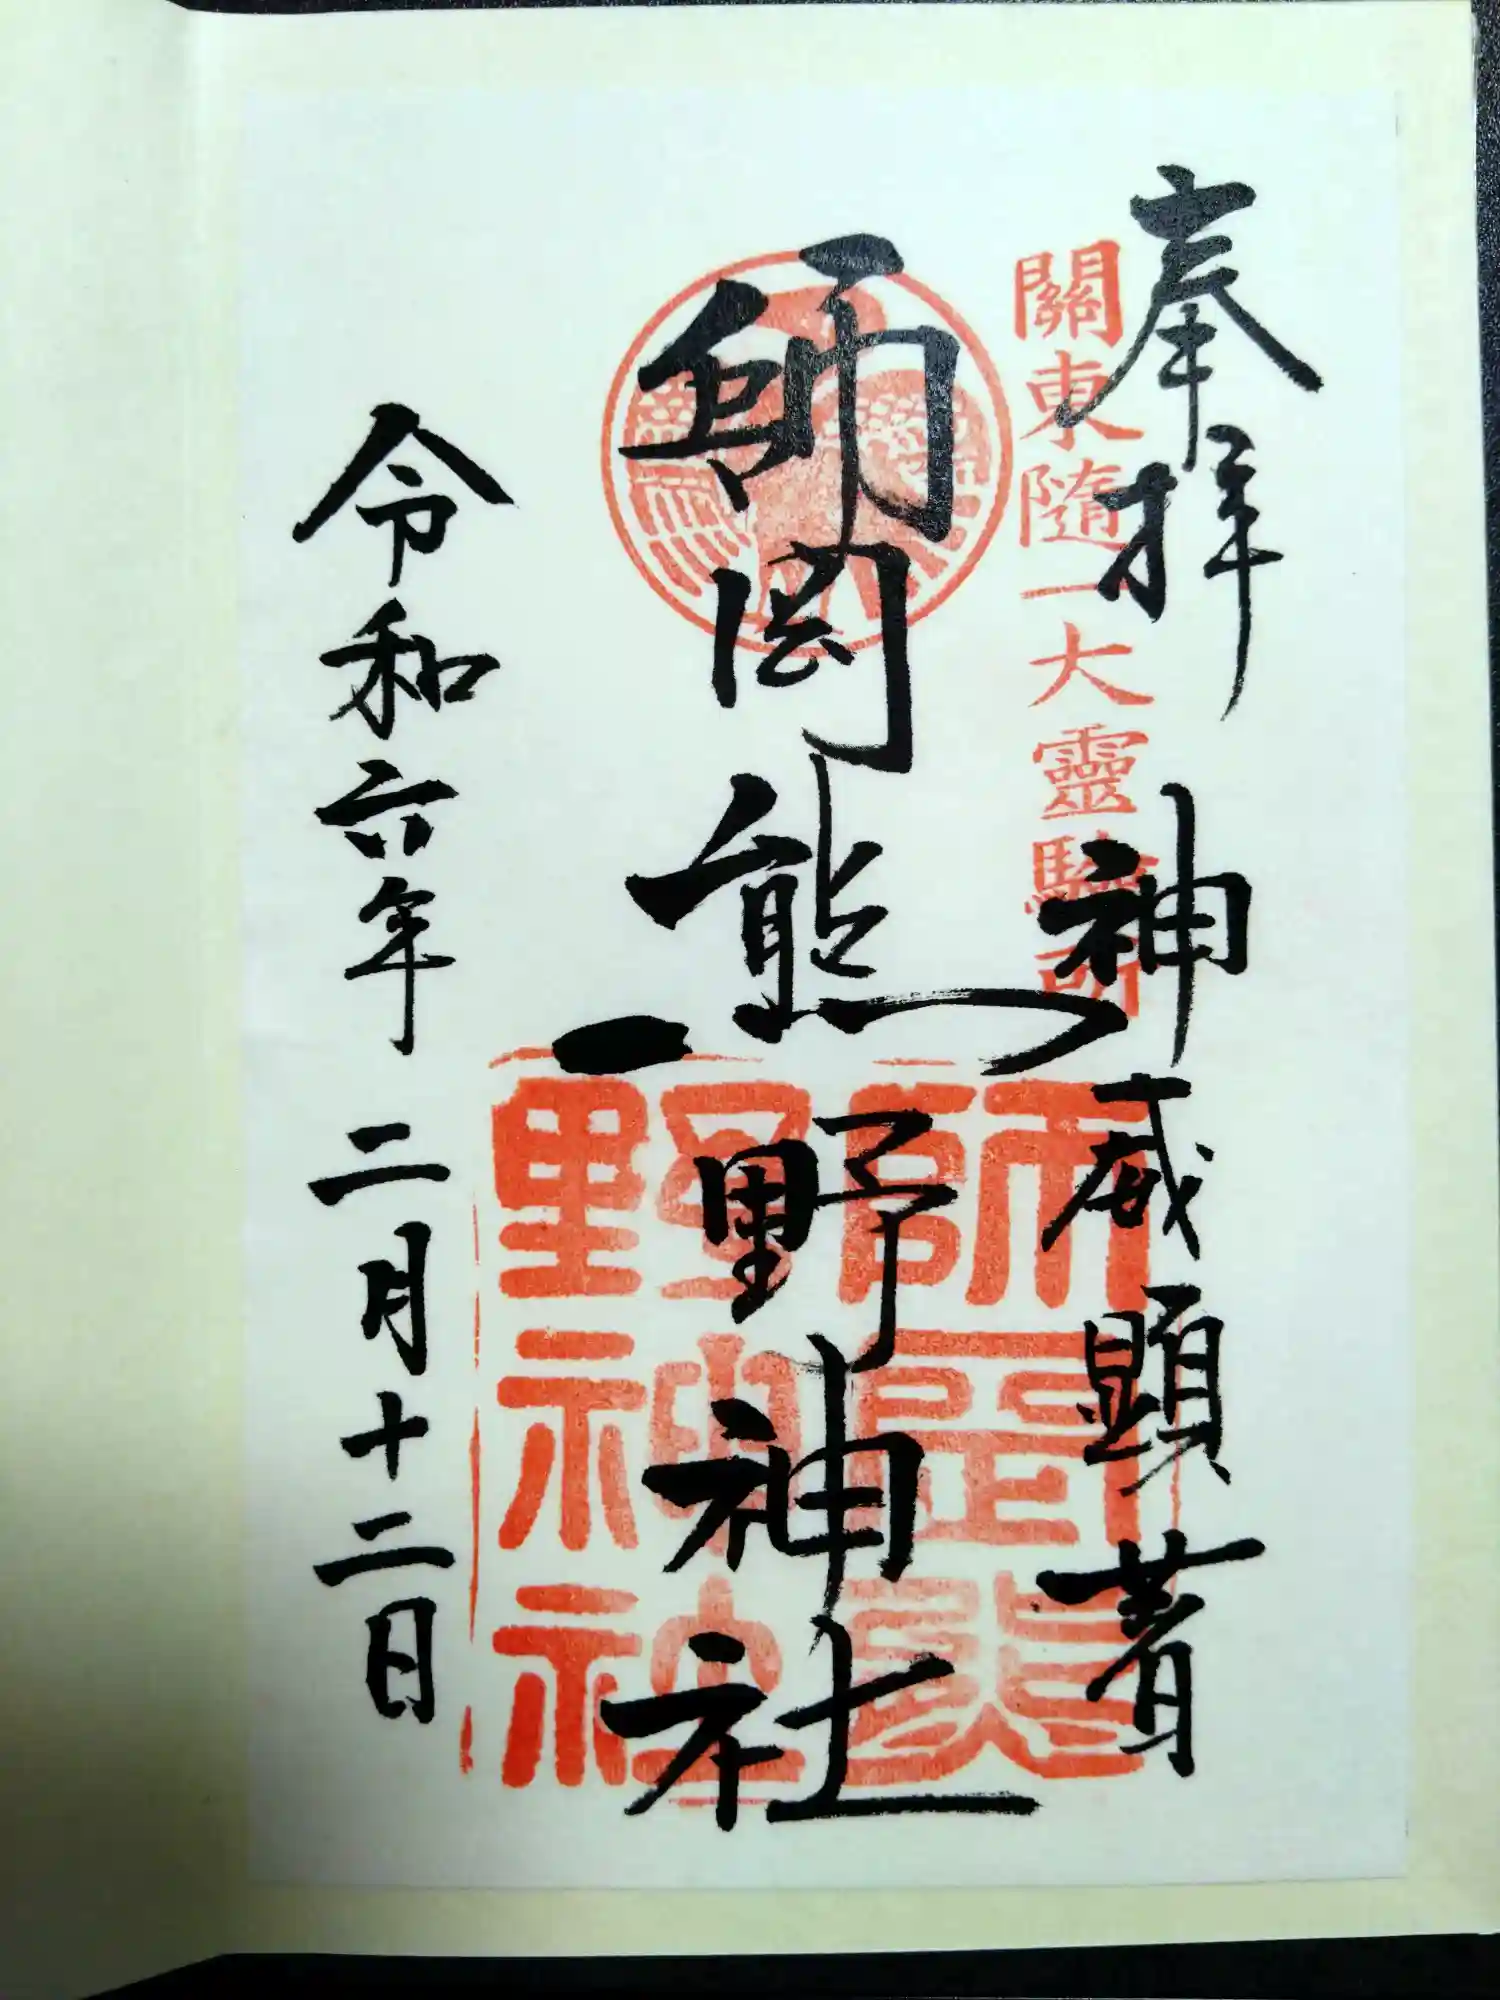 奉拝
神威顕著
關東隨一大靈驗所
師岡熊野神社
師岡熊
野神社
令和六年二月十二日